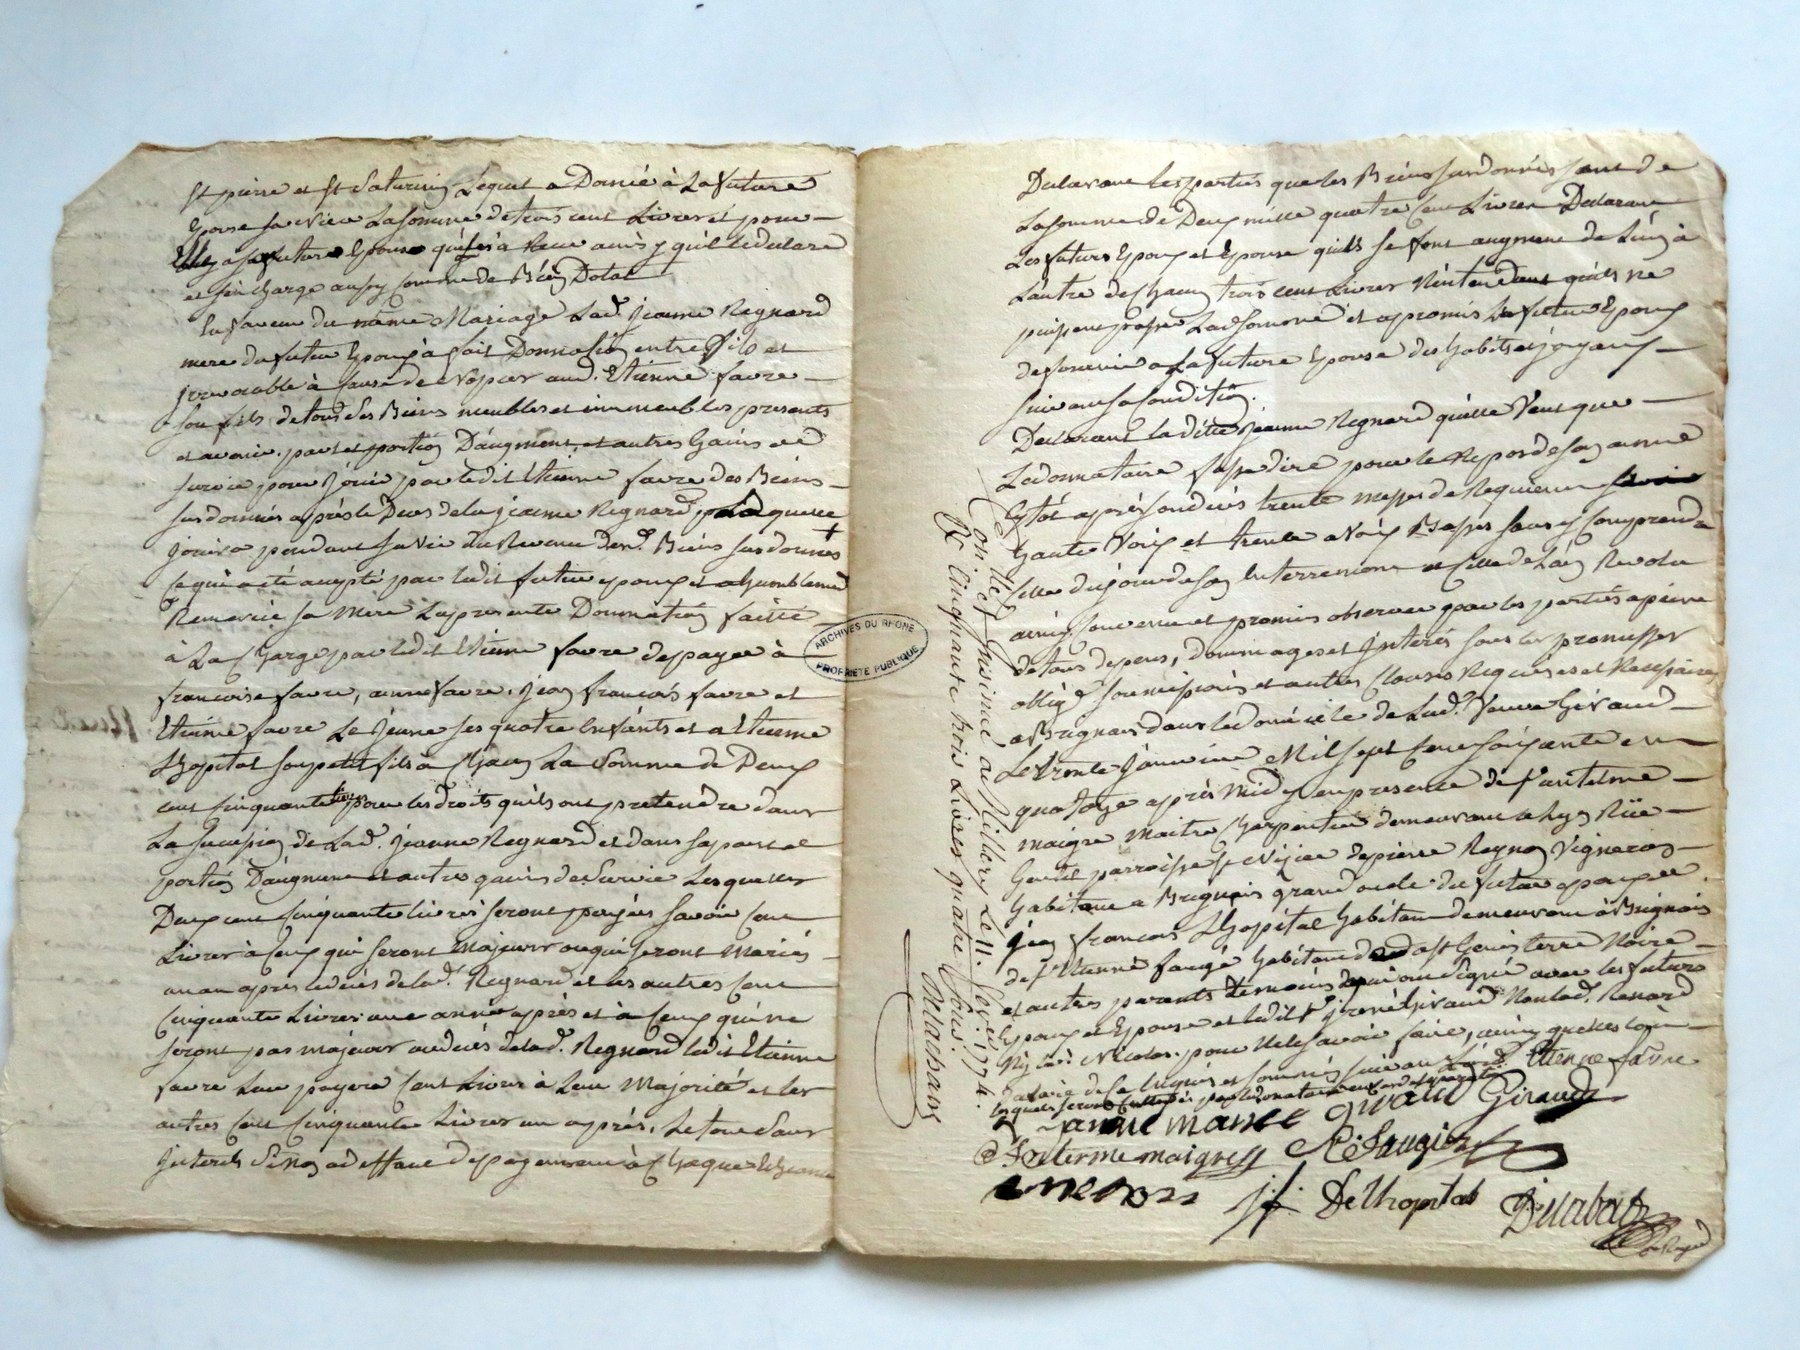 St pierre et St Saturnin Lequel a Donné à La future
Epouse sa niece La somme de trois cent Livres et pour
a future Epouse qu'il a Reçu ainsy qu'il le declare
et s'en charge aussy comme de Bien Dotal
En faveur du même Mariage Lad. jeanne Regnard
mere du futur Epoux à fait Donnation entre fils et
irrevocable à Cause de Nopces aud. Etienne favre
son fils de tous Ses Biens meubles et immeubles presents
et avenir part et portion D'augment et autres Gains de
survie pour jouir par ledit Etienne favre des Biens
sus donnés après le Deces de la jeanne Regnard Laquelle
jouira pendant Sa Vie du Revenu desd. Biens sus donnés
ce qui a été accepté par ledit futur epoux et a humblement
Remercié sa Mere La presente Donnation faitte
à La Charge par ledit Etienne favre de payer à
francoise favre, anne favre, jean francois favre et
Etienne favre Le Jeune ses quatre Enfants et a Etienne
Lhopital son petit fils à Chacun La Somme de Deux
cent cinquante livres pour les droits qu'ils ont pretendre dans
La succession de Lad. jeanne Regnard et dans sa part et
portion D'augment et autre gains de Survie Lesquelles
Deux cent cinquante livres seront payées savoir cent
Livres à Ceux qui seront Majeurs ou qui seront Mariés
un an après le décès de lad. Regnard et les autres Cent
Cinquante Livres une année après et à Ceux qui ne
seront pas majeurs au décès de lad. Regnard ledit Etienne
favre Leur payera Cent Livres à Leur Majorité et les
autres Cent Cinquante Livres un an après, Le tout Sans
Interets Sinon a deffaut de payement à Chaque Echeance
Declarant les parties que les Biens sus donnés sont de
La somme de Deux mille quatre Cent Livres Declarant
Les futurs Epoux et Epouse qu'ils se font augment de L'un à
L'autre de Chacun trois cent Livres N'entendent qu'ils ne
Lad. somme et a promis Le futur Epoux
de fournir a La future Epouse des habits et joyaux
suivant sa Condition.
Declarant la ditte jeanne Regnard qu'elle Veut que
Le donnataire fasse dire pour le Repos de son ame
après son décès trente messes de Requiem
haute Voix et trente a Voix Basses sans y Comprendre
celle du jour de son Enterrement et Celle de L'an Revolu
ainsy convenu et promis observer par les parties a peine
de tous depens, dommages et Interets sous les promesses
obligs soumissions et autres Clauses Requises et Necessaires
a Brignais dans le domicile de Lad. Veuve Giraud
Le trente Janvier Mil Sept Cent soixante en
quatorze après Midy en presence de Santelme
maigre maitre Charpentier demeurant a Lyon Rüe
parroisse St Nizier de pierre Reynon Vigneron
habitant a Brignais grand oncle du futur epoux de
jean francois Lhopital habitant demeurant à Brignais
de Etienne faugé habitant a St Genis terre Noire
et autres parents Temoins qui ont signé avec les futurs
Epoux et Epouse et ledit Giraud Non Lad. Renard
Ny Nicolas pour Ne le savoir faire, ainsy quelles l'ont
declaré de Ce Enquis et Sommés
Etienne favre
Janne marie Giraud Giraud
Santerme maigre
N. Faugier
j: f: De Lhopital
Delabat
Con. lé et Insinué a Millery Le 11 fev. 1774.
R. Cinquante trois Livres quatre Sous.
Delachant
ARCHIVES DU RHÔNE
PROPRIÉTÉ PUBLIQUE